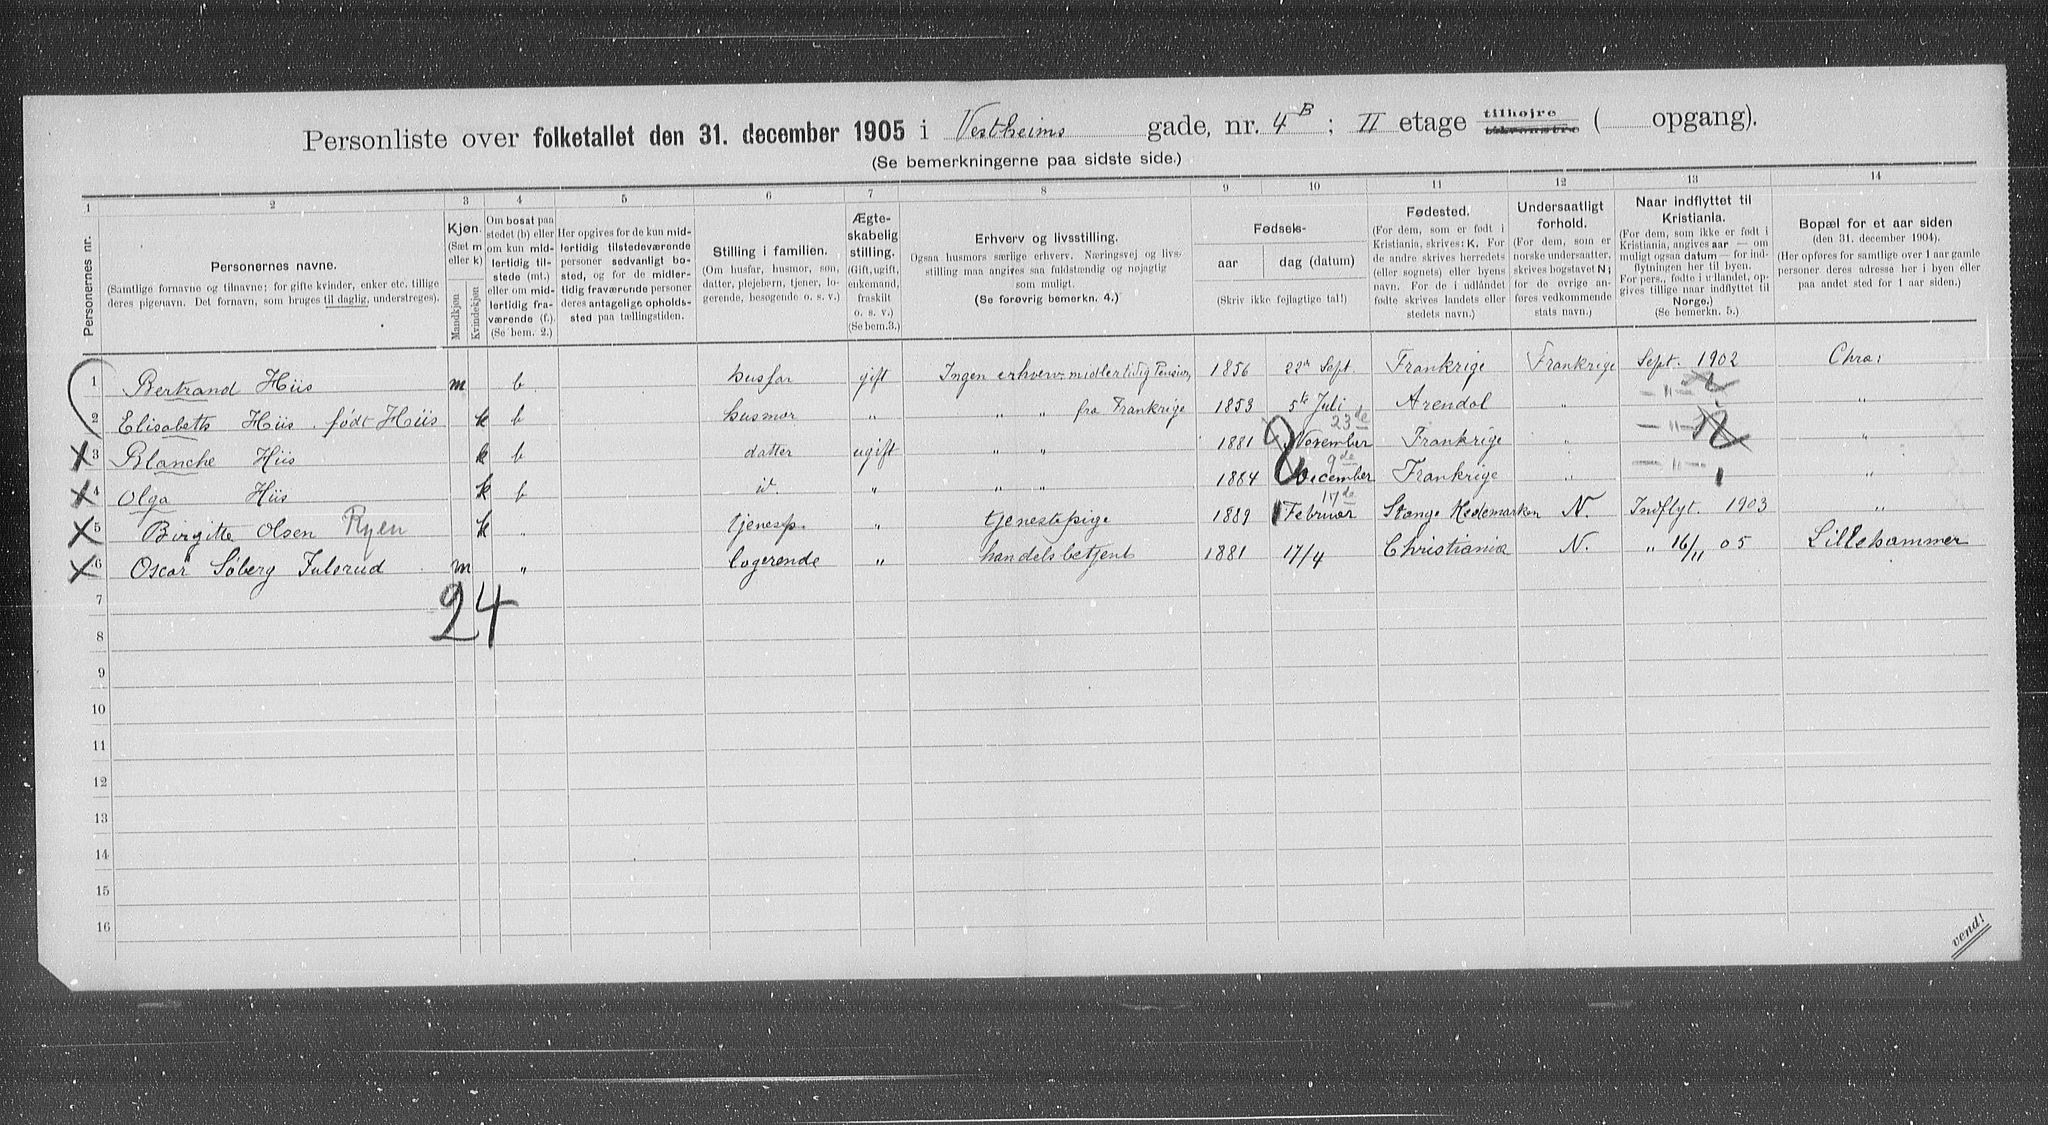 Personliste over folketallet den 31. december 1905 i Vestheims gade, nr. 4 B ; II etage tilhøjre tilvenstre ( opgang).
(Se bemerkningerne paa sidste side.)
1 2 3 4 5 6 7 8 9 10 11 12 13 14
Personernes nr.
Personernes navne.
(Samtlige fornavne og tilnavne; for gifte kvinder, enker etc. tillige
deres pigenavn. Det fornavn, som bruges til daglig, understreges).
Kjøn.
(Sæt m
eller k)
Mandkjøn
Kvindekjøn
Om bosat paa
stedet (b) eller
om kun mid-
lertidig til-
stede (mt.)
eller om mid-
lertidig fra-
værende (f.).
(Se bem. 2.)
Her opgives for de kun mid-
lertidig tilstedeværende
personer sedvanligt bo-
sted, og for de midler-
tidig fraværende personer
deres antagelige opholds-
sted paa tællingstiden.
Stilling i familien.
(Om husfar, husmor, søn,
datter, plejebørn, tjener, lo-
gerende, besøgende o. s. v.)
Ægte-
skabelig
stilling.
(Gift, ugift,
enkemand,
fraskilt
o. s. v.)
(Se bem.3.)
Erhverv og livsstilling.
Ogsaa husmors særlige erhverv. Næringsvej og livs-
stilling maa angives saa fuldstændig og nøjagtig
som muligt.
(Se forøvrig bemerkn. 4.)
Fødsels-
aar dag (datum)
(Skriv ikke fejlagtige tal!)
Fødested.
(For dem, som er født i
Kristiania, skrives: K. For
de andre skrives herredets
(eller sognets) eller byens
navn. For de i udlandet
fødte skrives landets eller
stedets navn.)
Undersaatligt
forhold.
(For dem, som er
norske undersaatter,
skrives bogstavet N;
for de øvrige an-
føres vedkommende
stats navn.)
Naar indflyttet til
Kristiania.
(For dem, som ikke er født i
Kristiania, angives aar — om
muligt ogsaa datum — for ind-
flytningen her til byen.
For pers., fødte i udlandet, op-
gives tillige naar indflyttet til
Norge.)
(Se bemerkn. 5.)
Bopæl for et aar siden
(den 31. december 1904).
(Her opføres for samtlige over 1 aar gamle
personer deres adresse her i byen eller
paa andet sted for 1 aar siden.)
1 Bertrand Hiis m b husfar gift Ingen erhverv. midlertidig Pension 1856 22n Sept Frankrige Frankrige Sept. 1902 Chra:
2 Elisabeth Hiis født Hiis k b husmor " " " fra Frankrige 1853 5te Juli Arendal " — " — "
3 Blanche Hiis k b datter ugift " " 1881 23de November Frankrige " — " — "
4 Olga Hiis k b id. " " " 1884 9de December Frankrige " — " — "
5 Birgitte Olsen Ryen k " tjenesp. " tjenestepige 1889 17de Februar Stange Hedemarken N. Indflyt. 1903 "
6 Oscar Søberg Julsrud m " logerende " handelsbetjent 1881 17/4 Christiania N. " 16/11 05 Lillehammer
7
24
8
9
10
11
12
13
14
15
16
vend!